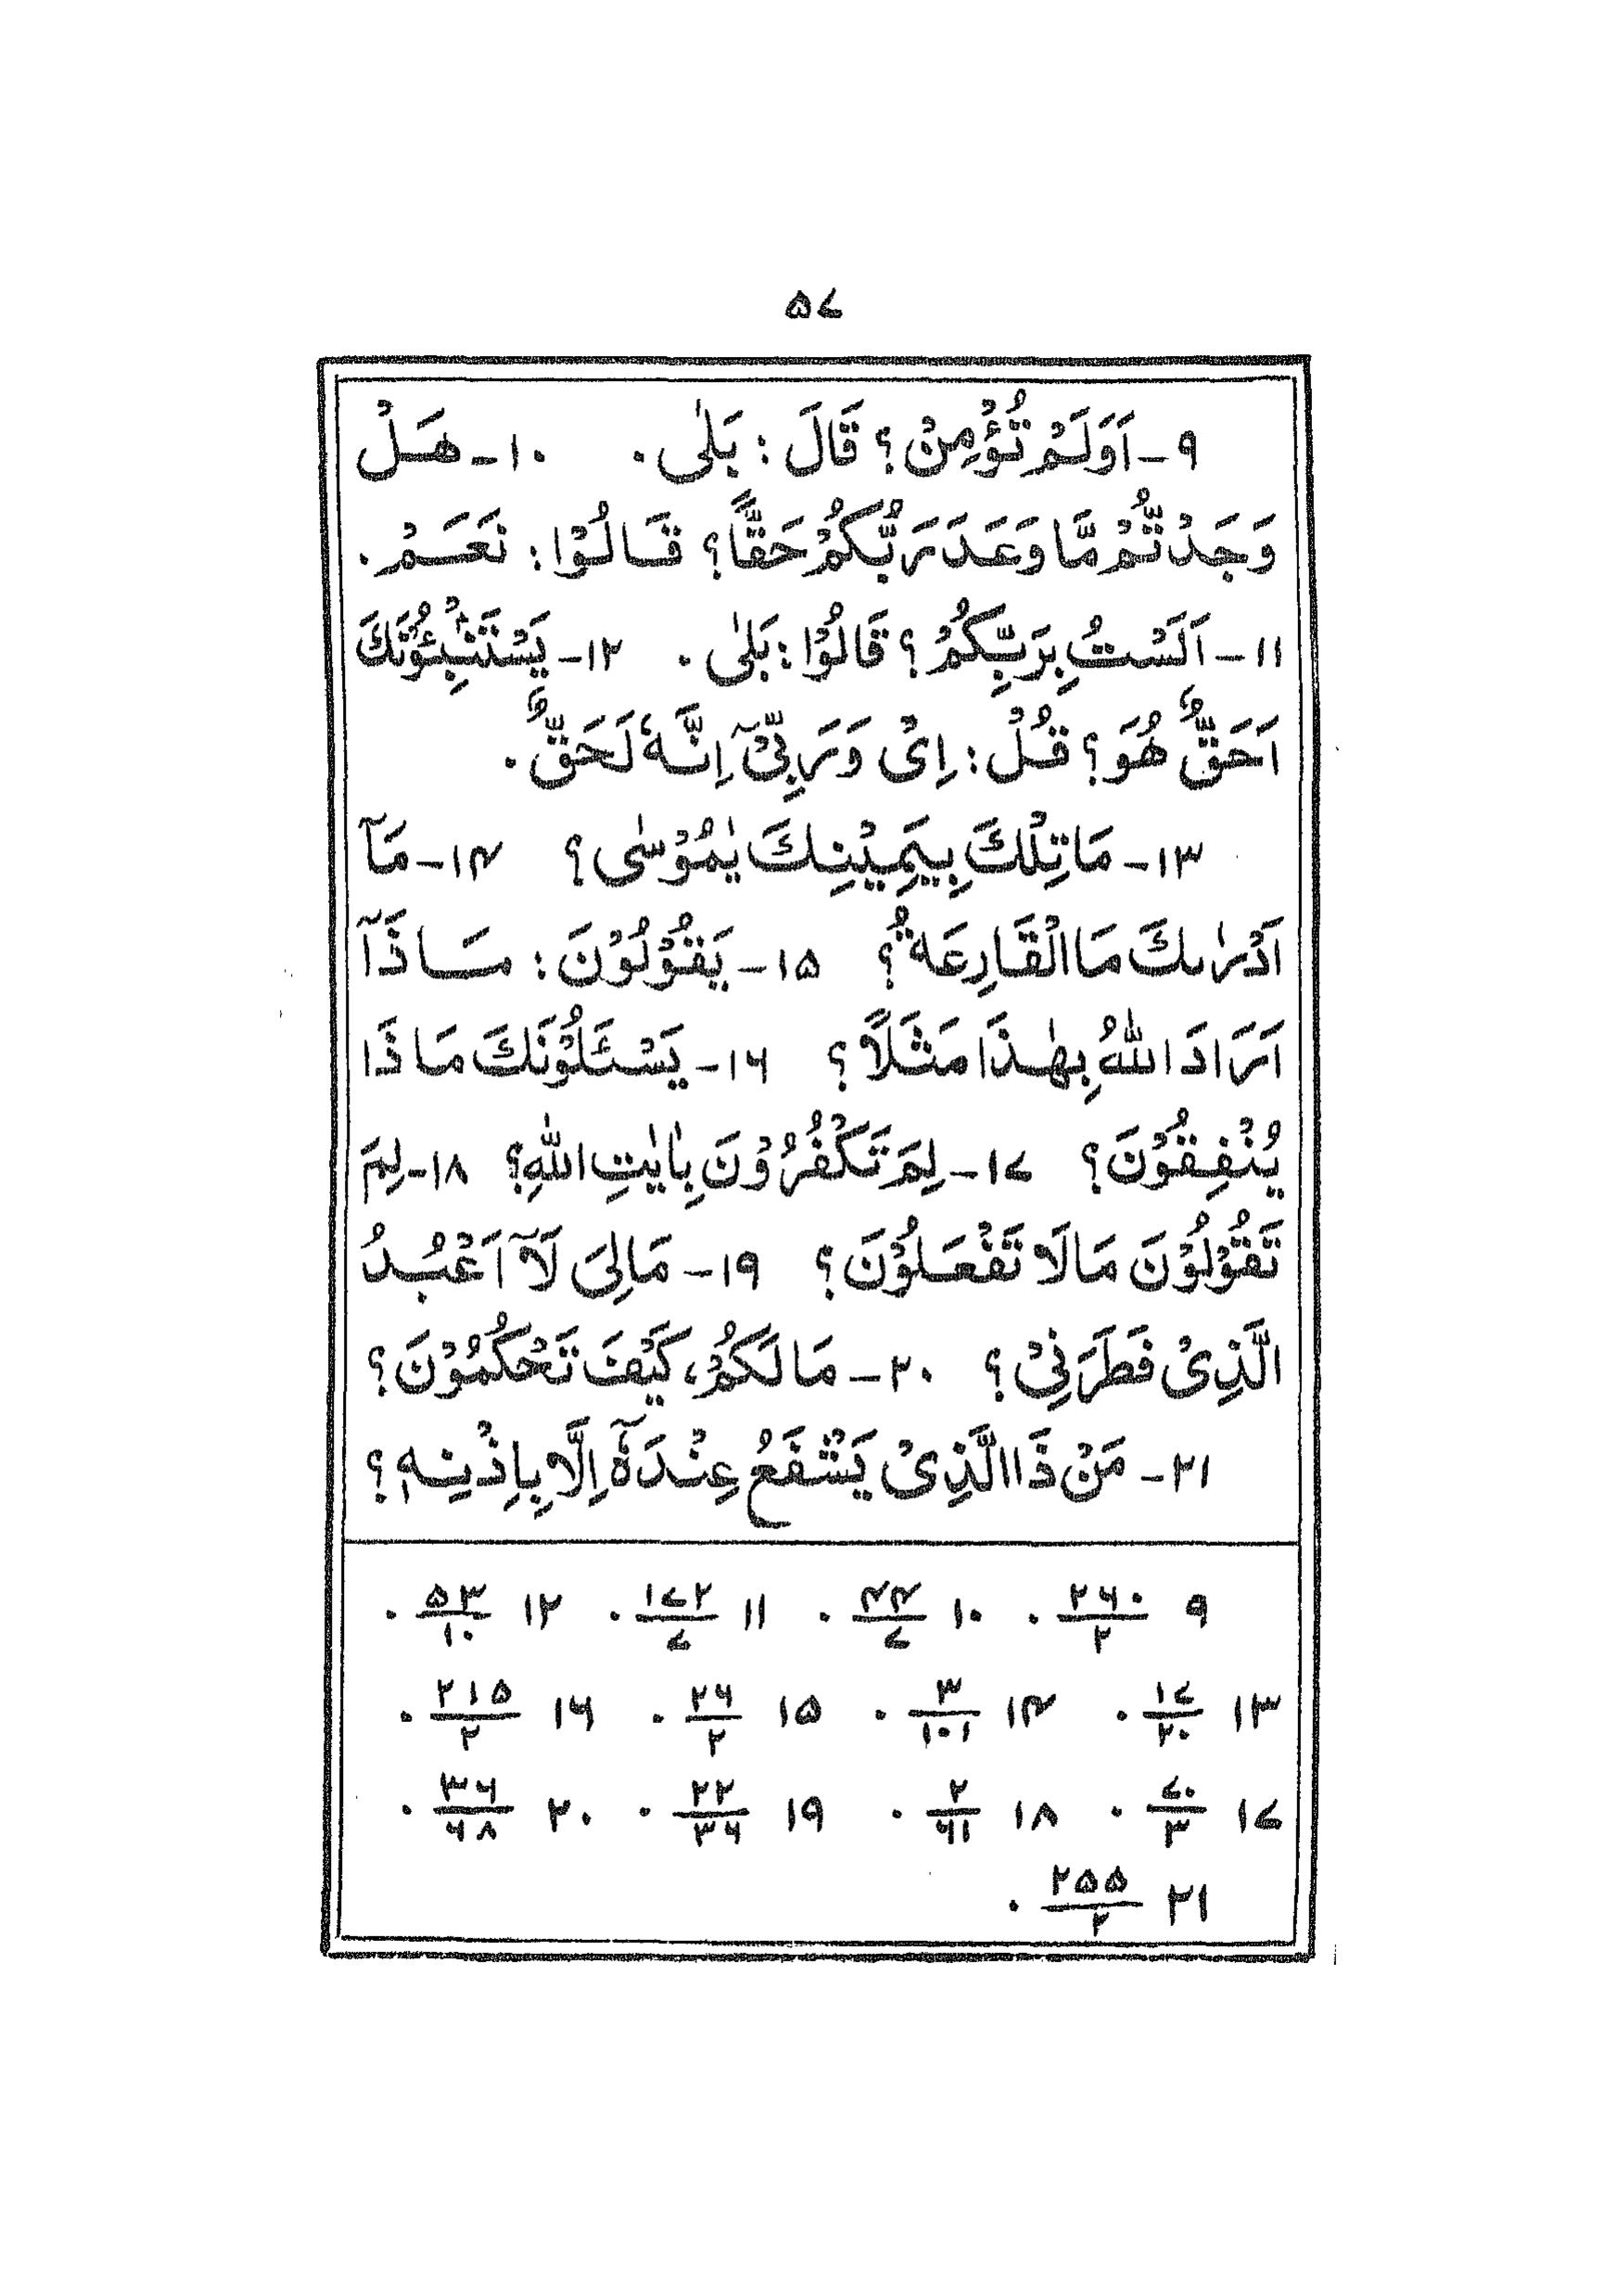 ۵۷
۹- اَوَلَمْ تُؤْمِنْ؟ قَالَ: بَلٰى. ۱۰- هَلْ
وَجَدْتُّمْ مَّا وَعَدَ رَبُّكُمْ حَقًّا؟ قَالُوْا: نَعَمْ.
۱۱- اَلَسْتُ بِرَبِّكُمْ؟ قَالُوْا: بَلٰى. ۱۲- يَسْتَنْۢبِئُوْنَكَ
اَحَقٌّ هُوَ؟ قُلْ: اِىْ وَرَبِّىْٓ اِنَّهٗ لَحَقٌّ.
۱۳- مَا تِلْكَ بِيَمِيْنِكَ يٰمُوْسٰى؟ ۱۴- مَآ
اَدْرٰىكَ مَا الْقَارِعَةُ؟ ۱۵- يَقُوْلُوْنَ: مَاذَآ
اَرَادَ اللّٰهُ بِهٰذَا مَثَلًا؟ ۱۶- يَسْـَٔلُوْنَكَ مَاذَا
يُنْفِقُوْنَ؟ ۱۷- لِمَ تَكْفُرُوْنَ بِاٰيٰتِ اللّٰهِ؟ ۱۸- لِمَ
تَقُوْلُوْنَ مَا لَا تَفْعَلُوْنَ؟ ۱۹- مَا لِىَ لَآ اَعْبُدُ
الَّذِىْ فَطَرَنِىْ؟ ۲۰- مَا لَكُمْ، كَيْفَ تَحْكُمُوْنَ؟
۲۱- مَنْ ذَا الَّذِىْ يَشْفَعُ عِنْدَهٗٓ اِلَّا بِاِذْنِهٖ؟
۹ ۲۶۰/۲. ۱۰ ۴۴/۷. ۱۱ ۱۷۲/۷. ۱۲ ۵۳/۱۰.
۱۳ ۱۷/۲۰. ۱۴ ۳/۱۰۱. ۱۵ ۲۶/۲. ۱۶ ۲۱۵/۲.
۱۷ ۷۰/۳. ۱۸ ۲/۶۱. ۱۹ ۲۲/۳۶. ۲۰ ۳۶/۶۸.
۲۱ ۲۵۵/۲.